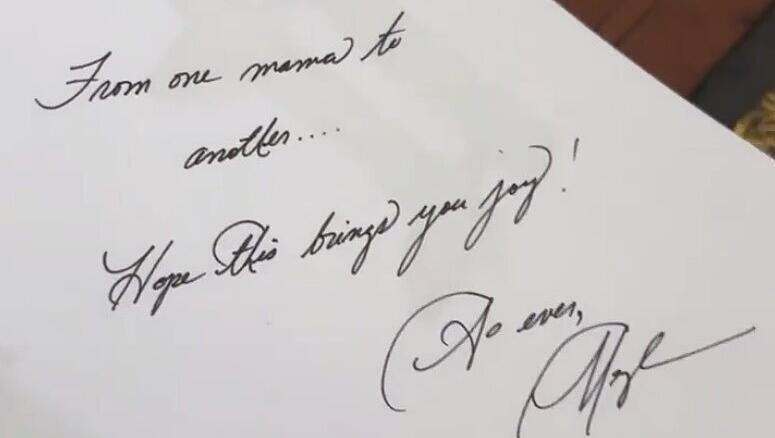 From one mama to
another....
Hope this brings you joy!
As ever,